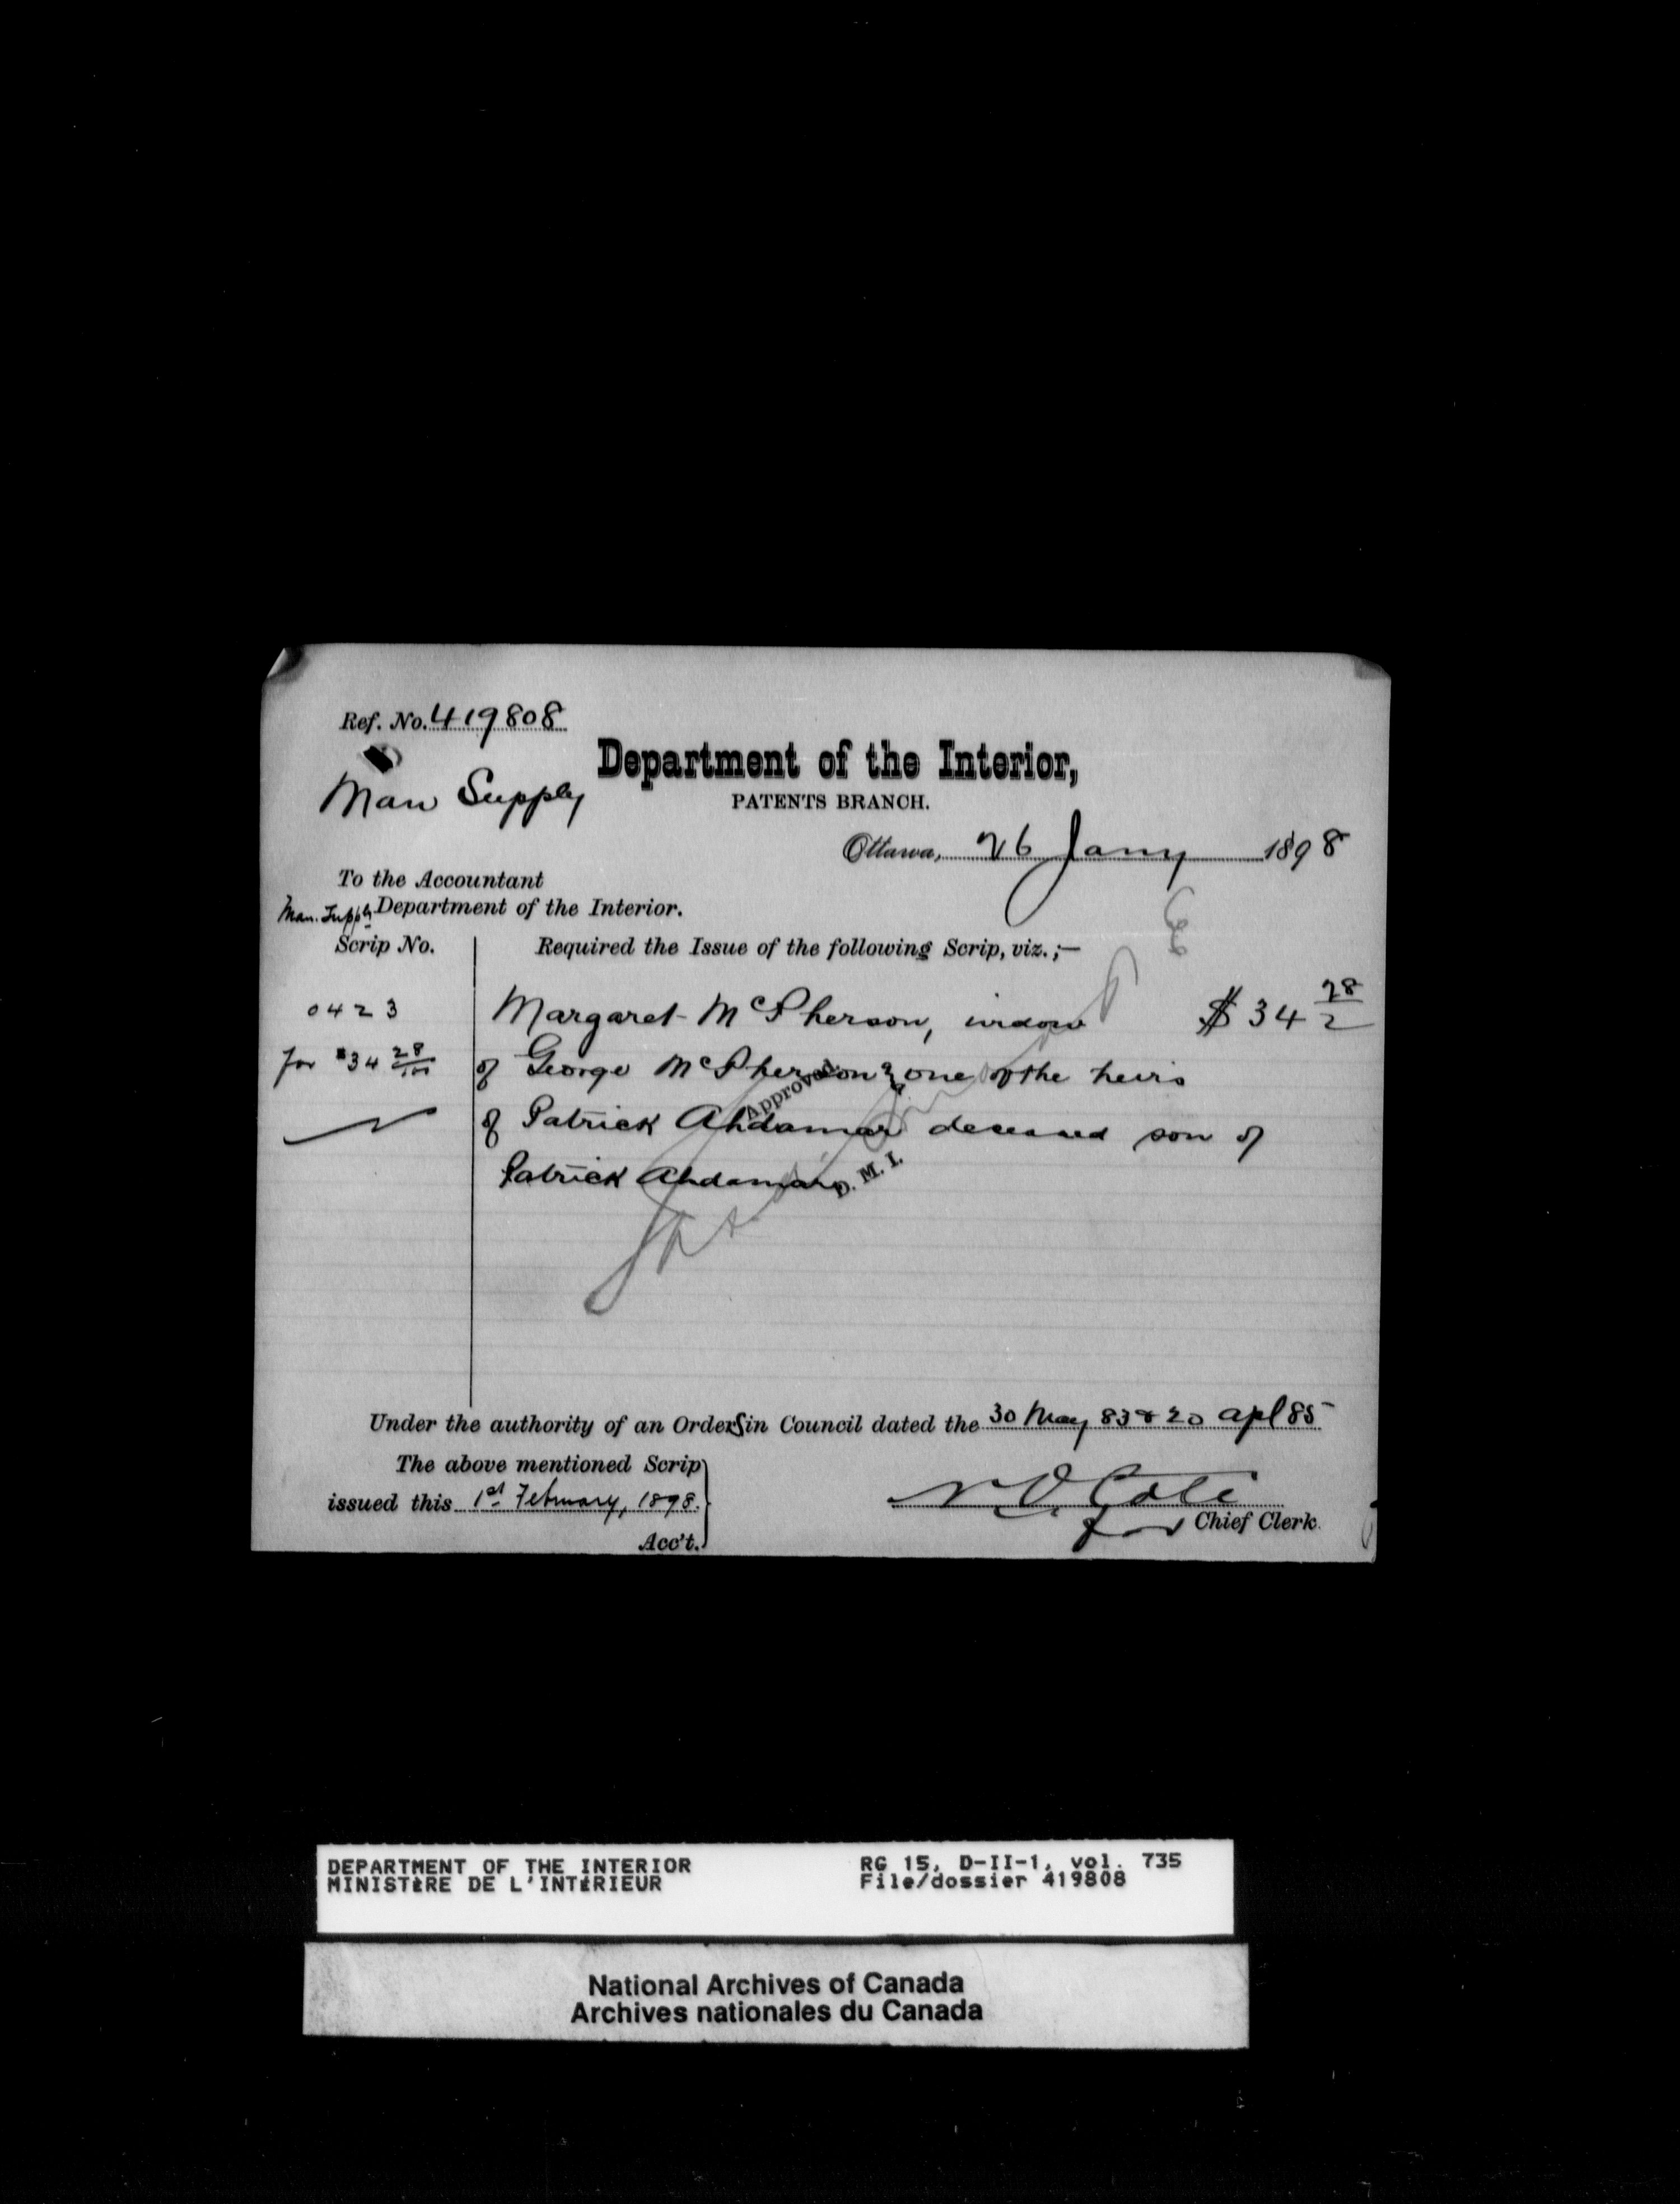 Ref. No. 419808
Man Supply
Department of the Interior,
PATENTS BRANCH.
Ottawa, 26 Jany 1898
To the Accountant
Man. Supply Department of the Interior.
Scrip No.
Required the Issue of the following Scrip, viz.;—
0423
Margaret McPherson, widow $34 28/
for $34 28/100
of George McPherson & one of the heirs
of Patrick Ahdamar deceased son of
Patrick Ahdamar
Approved
D. M. I.
Under the authority of an Orders in Council dated the 30 May 83 & 20 apl 85
The above mentioned Scrip
issued this 1st February, 1898.
Acc't.
N. O. Coté
for Chief Clerk.
DEPARTMENT OF THE INTERIOR
MINISTÈRE DE L'INTÉRIEUR
RG 15, D-II-1, vol. 735
File/dossier 419808
National Archives of Canada
Archives nationales du Canada